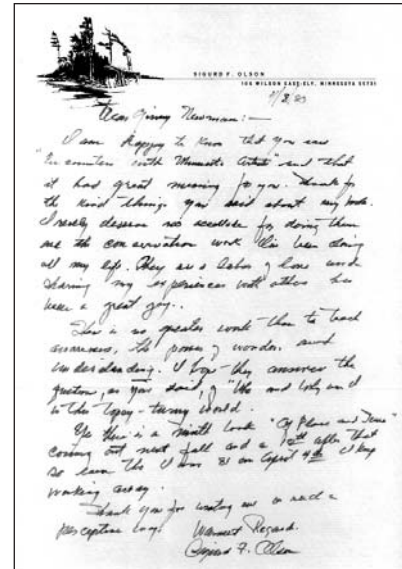 SIGURD F. OLSON
106 WILSON EAST·ELY, MINNESOTA 55731
Dear Ginny Newman:—
I am happy to know that you saw
"Encounters with Minnesota Artists" and that
it had great meaning for you. Thanks for
the kind things you said about my books.
I really deserve no accolade for doing them
the conservation work I've been doing
all my life. They are a labor of love and
sharing my experiences with others has
been a great joy.
There is no greater work than to teach
awareness, the power of wonder and
understanding. I hope they answered the
question, as you said, of "Who and Why am I
in this topsy-turvy world.
Yes there is a ninth book "Of Place and Time"
coming out next fall and a 10th after that
so even tho I was 81 on April 4th I keep
working away.
Thank you for writing me in such a
perceptive way. Warmest Regards.
Sigurd F. Olson